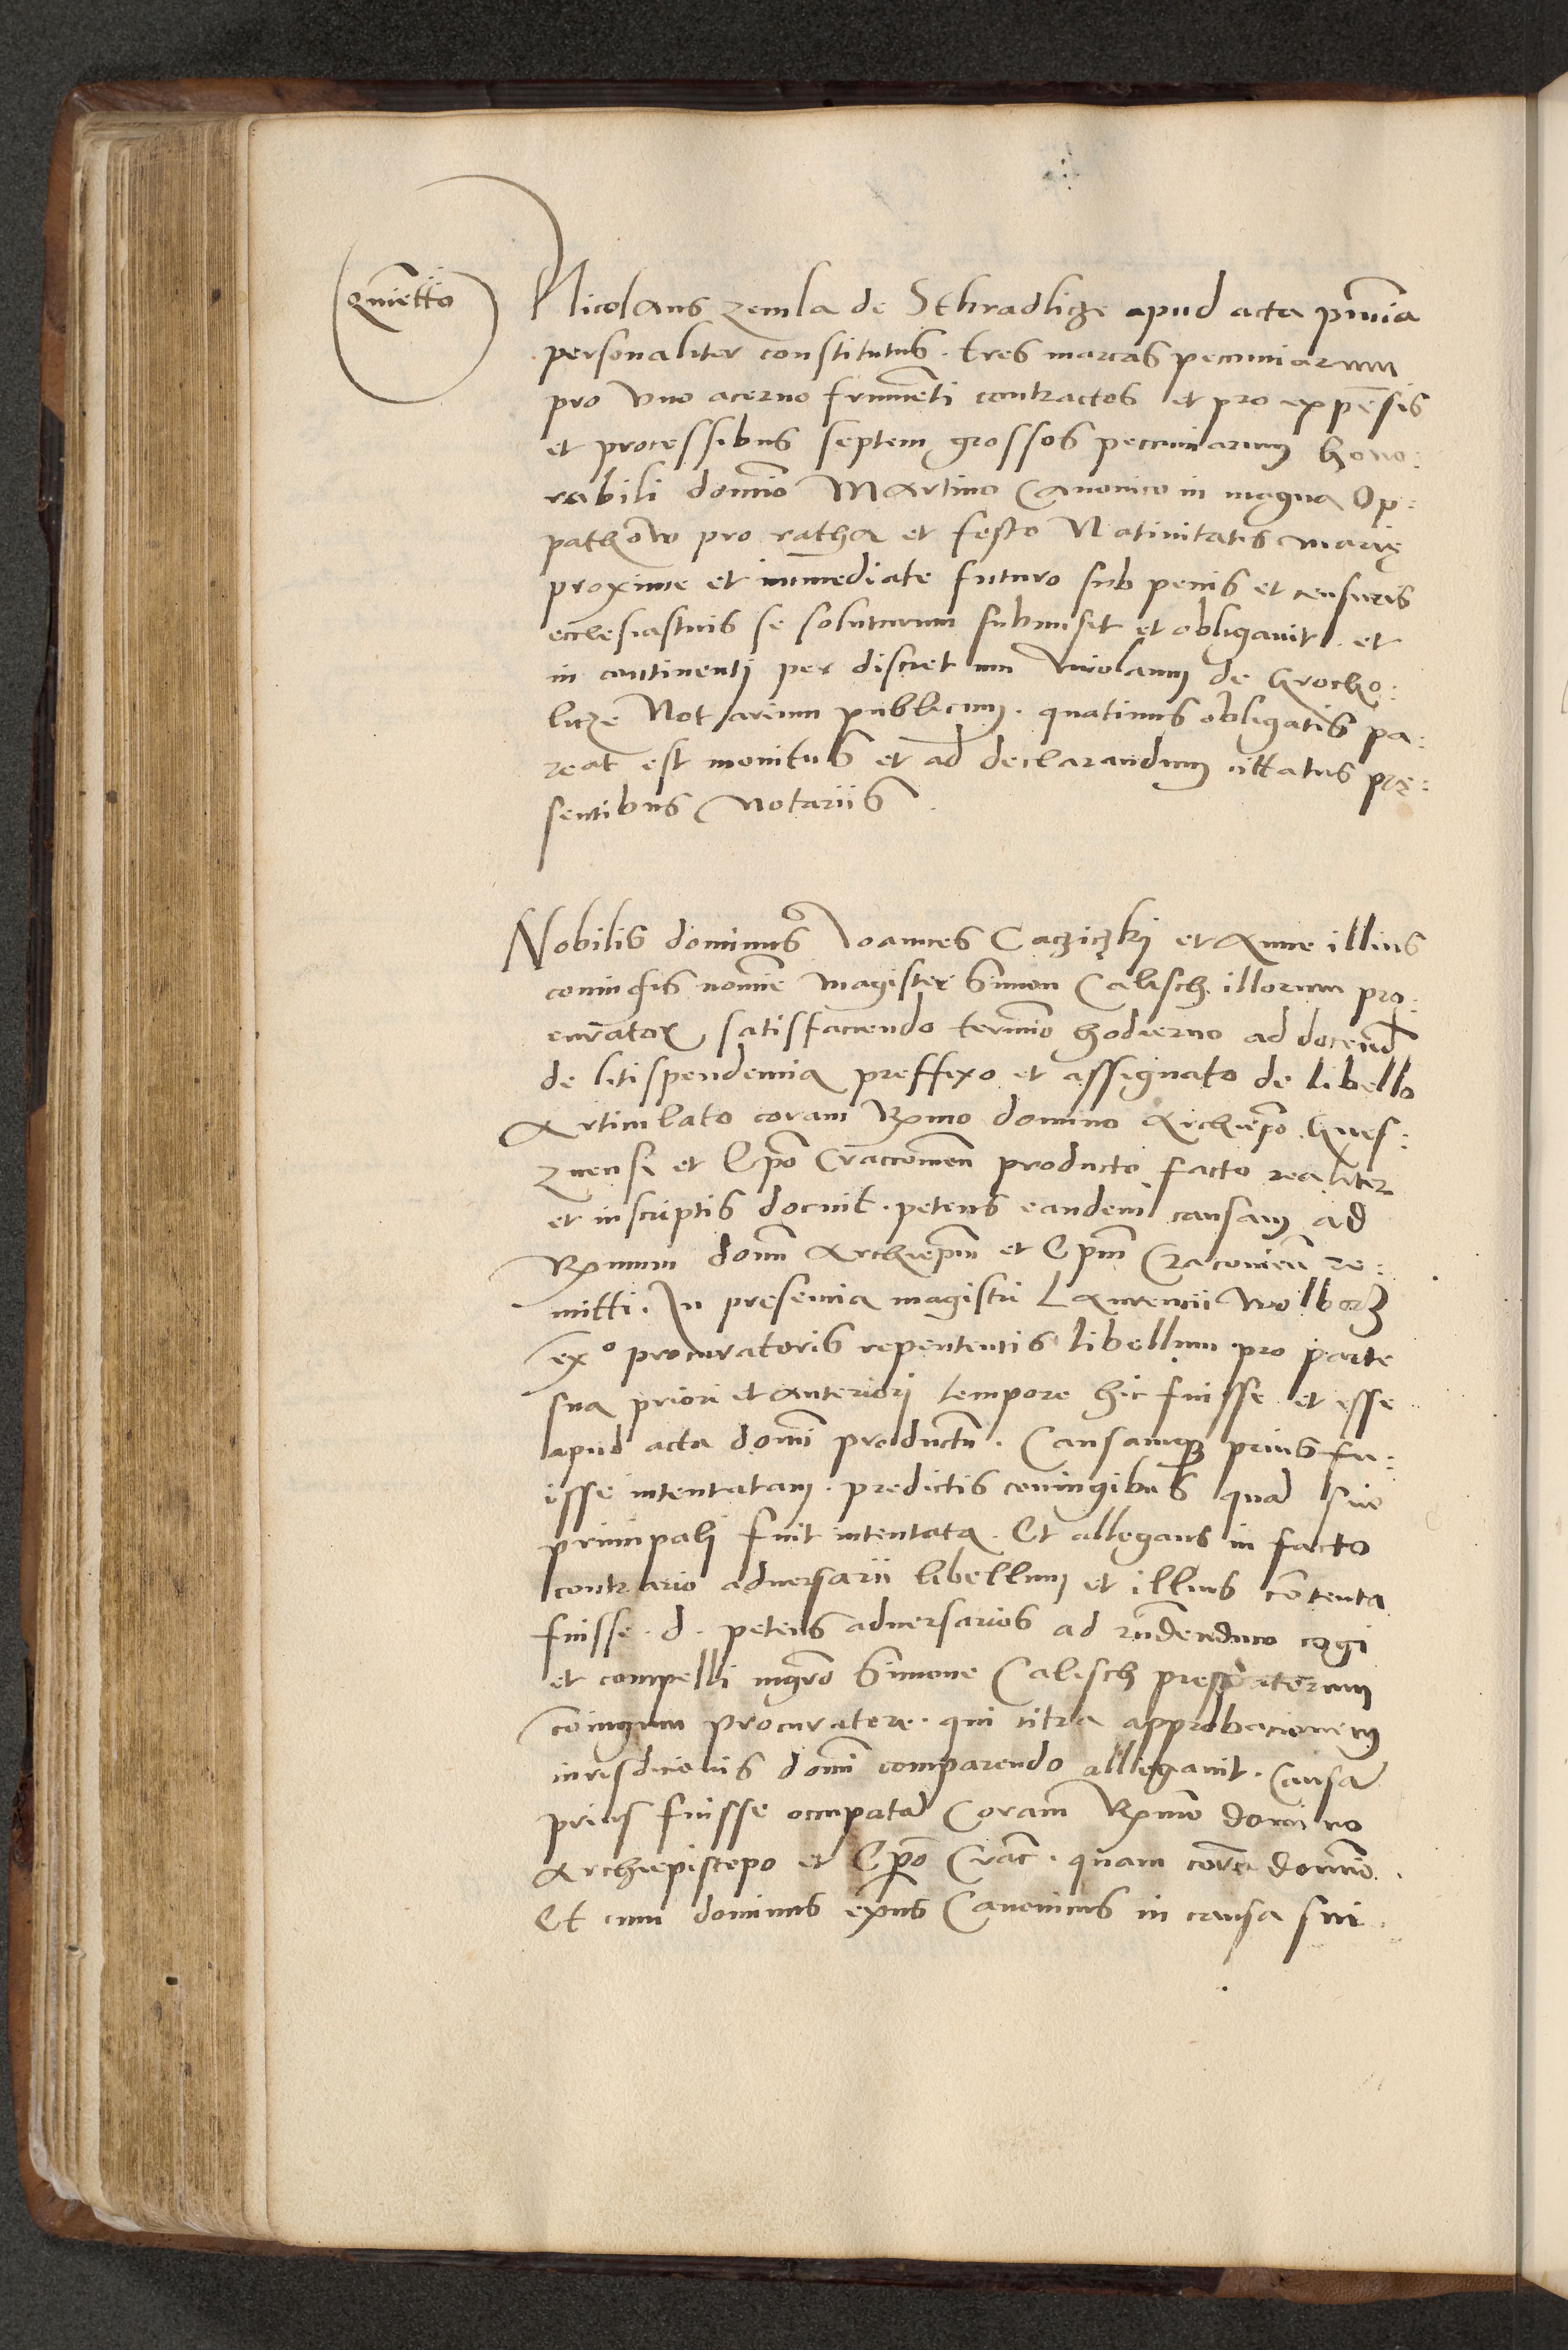 quietto
Nicolaus zemla de Sthradlicze apud acta pnīcia
personaliter constitutus . tres marcas pecuniarum
pro vno acervo frumēti contractos et pro expēsis
et processibus septem grossos pecuniarum hono:
rabili domīo Martino Canonico in magna Op:
pathow pro ratha et festo Natiuitatis marię
proxime et immediate futuro sub penis et censuris
ecclesiasticis se soluturum submisit et obligauit . et
in continenti per discretum Nicolaum de Grocho:
licze Notarium publicum . quatinus obligatis pa:
reat est monitus et ad declarandum cittatus prę:
sentibus Notariis .
Nobilis dominus Ioannes Caczickj et Anne illius
coniugis nomīe magister Simon Calisch illorum pro:
curator satisfaciendo termīo hodierno ad docend
de litispendencia preffixo et assignato de libello
Articulato coram Rmo domino Archiepo Gnes:
znensi et Epo Cracouien producto facto realiter
et inscriptis docuit . petens eandem causam ad
Rmum domī Archiepm et Epm Cracouien re:
mitti . In presencia magistri Laurencii Wolborz
exº procuratoris repetentis libellum pro parte
sua priori et anteriori tempore hic fuisse et esse
apud acta domī productū . Causamque prius fu:
isse intentatam . predictis coniugibus quā suo
principali fuit intentata . Et allegans in facto
contrario aduersarii libellum et illius cōtenta
fuisse . d . petens aduersarios ad rn̄dendum cogi
et compelli mgrō Simone Calisch prefatorum
cōiugum procuratore . qui citra approbacionem
iurisdicionis domī comparendo allegauit . Causā
prius fuisse occupatā Coram Rmo domino
Archiepiscopo et Epo Crac . quam corā domīo .
Et cum dominus exus Canonicus in causa sui .